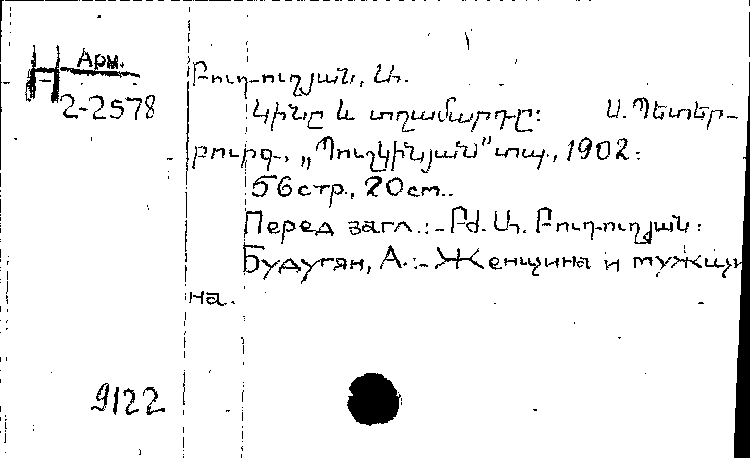 Арм.
Н
2-2578
Բուդուղյան, Ա.
Կինը և տղամարդը: Ս. Պետեր-
բուրգ, „Պուշկինյան" տպ., 1902:
56 стр., 20 cm..
Перед загл.:- Բժ. Ա. Բուդուղյան:
Будугян, А.:- Женщина и мужщи
на.
9122